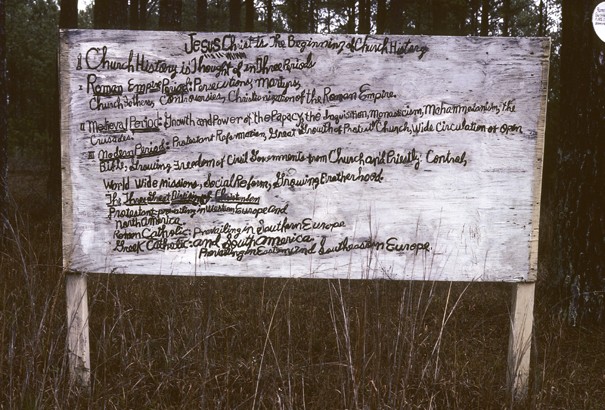 Jesus Christ Is The Beginning of Church History
Church History is Thought of in Three Periods
I Roman Empire Period: Persecutions, Martyrs,
Church Fathers, Controversies, Christianization of the Roman Empire.
II Medieval Period: Growth and Power of the Papacy, the Inquisition, Monasticism, Mahammatanism, the
Crusades.
III Modern Period: Protestant Reformation, Great Growth of Church, Wide Circulation of Open
Bible, Growing Freedom of Civil Governments from Church and Priestly Control,
World Wide Missions, Social Reform, Growing Brotherhood.
The Three Great Divisions of Christendom
Protestant: prevailing in Western Europe and
North America
Roman Catholic: Prevailing in Southern Europe
and South America
Greek Catholic: Prevailing in Eastern and Southeastern Europe.